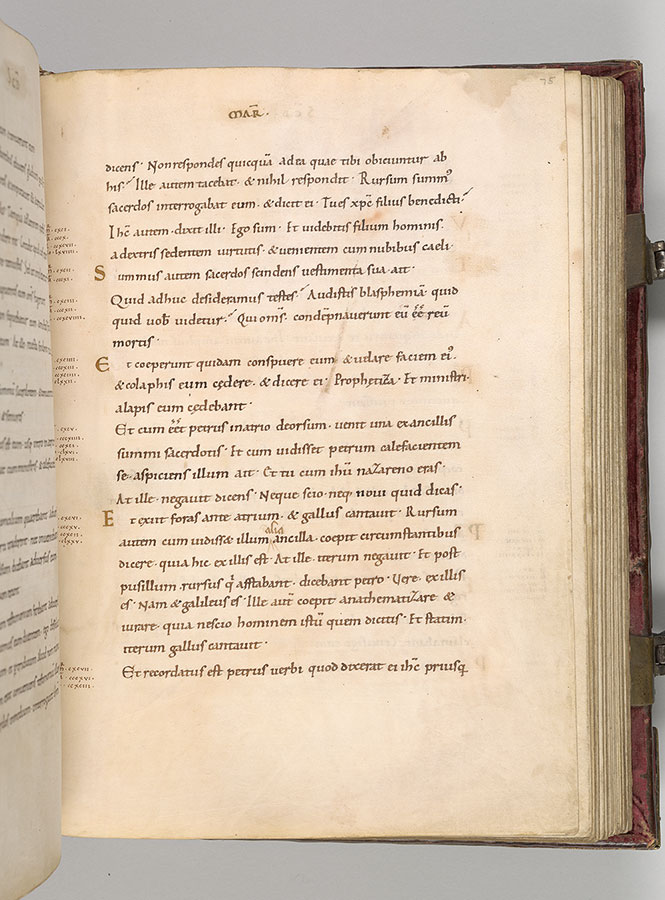 MAR̄.
75
dicens· Non respondes quicquā ad ea quae tibi obiciuntur ab
his·? Ille autem tacebat· & nihil respondit· Rursum summ'
sacerdos interrogabat eum· & dicit ei· Tu es xp̄c filius benedicti·?
Ih̄c autem· dixit illi· Ego sum· Et videbitis filium hominis·
a dextris sedentem virtutis· & venientem cum nubibus caeli·
Summus autem sacerdos scindens vestimenta sua· ait·
Quid adhuc desideramus testes·? Audistis blasphemiā· quid
quid vob̄ videtur·? Qui om̄s· condēpnaverunt eū eē̄ reū
mortis·
Et coeperunt quidam conspuere eum· & velare faciem ei'·
& colaphis eum cędere· & dicere ei· Prophetiza· Et ministri·
alapis eum cędebant·
Et cum eēt petrus in atrio deorsum· venit una ex ancillis
summi sacerdotis· Et cum vidisset petrum calefacientem
se· aspiciens illum ait· Et tu cum ihū nazareno eras·
At ille· negavit dicens· Neque scio· neq· novi quid dicas·
Et exiit foras ante atrium· & gallus cantavit· Rursum
alia
autem cum vidiss& illum ancilla· coepit circumstantibus
dicere· quia hic ex illis est· At ille· iterum negavit· Et post
pusillum· rursus q̄ astabant· dicebant petro· Vere· ex illis
es· Nam & galileus es· Ille aut̄ coepit anathematizare &
iurare· quia nescio hominem istū quem dicitis· Et statim·
iterum gallus cantavit·
Et recordatus est petrus verbi quod dixerat ei ih̄c priusq̄